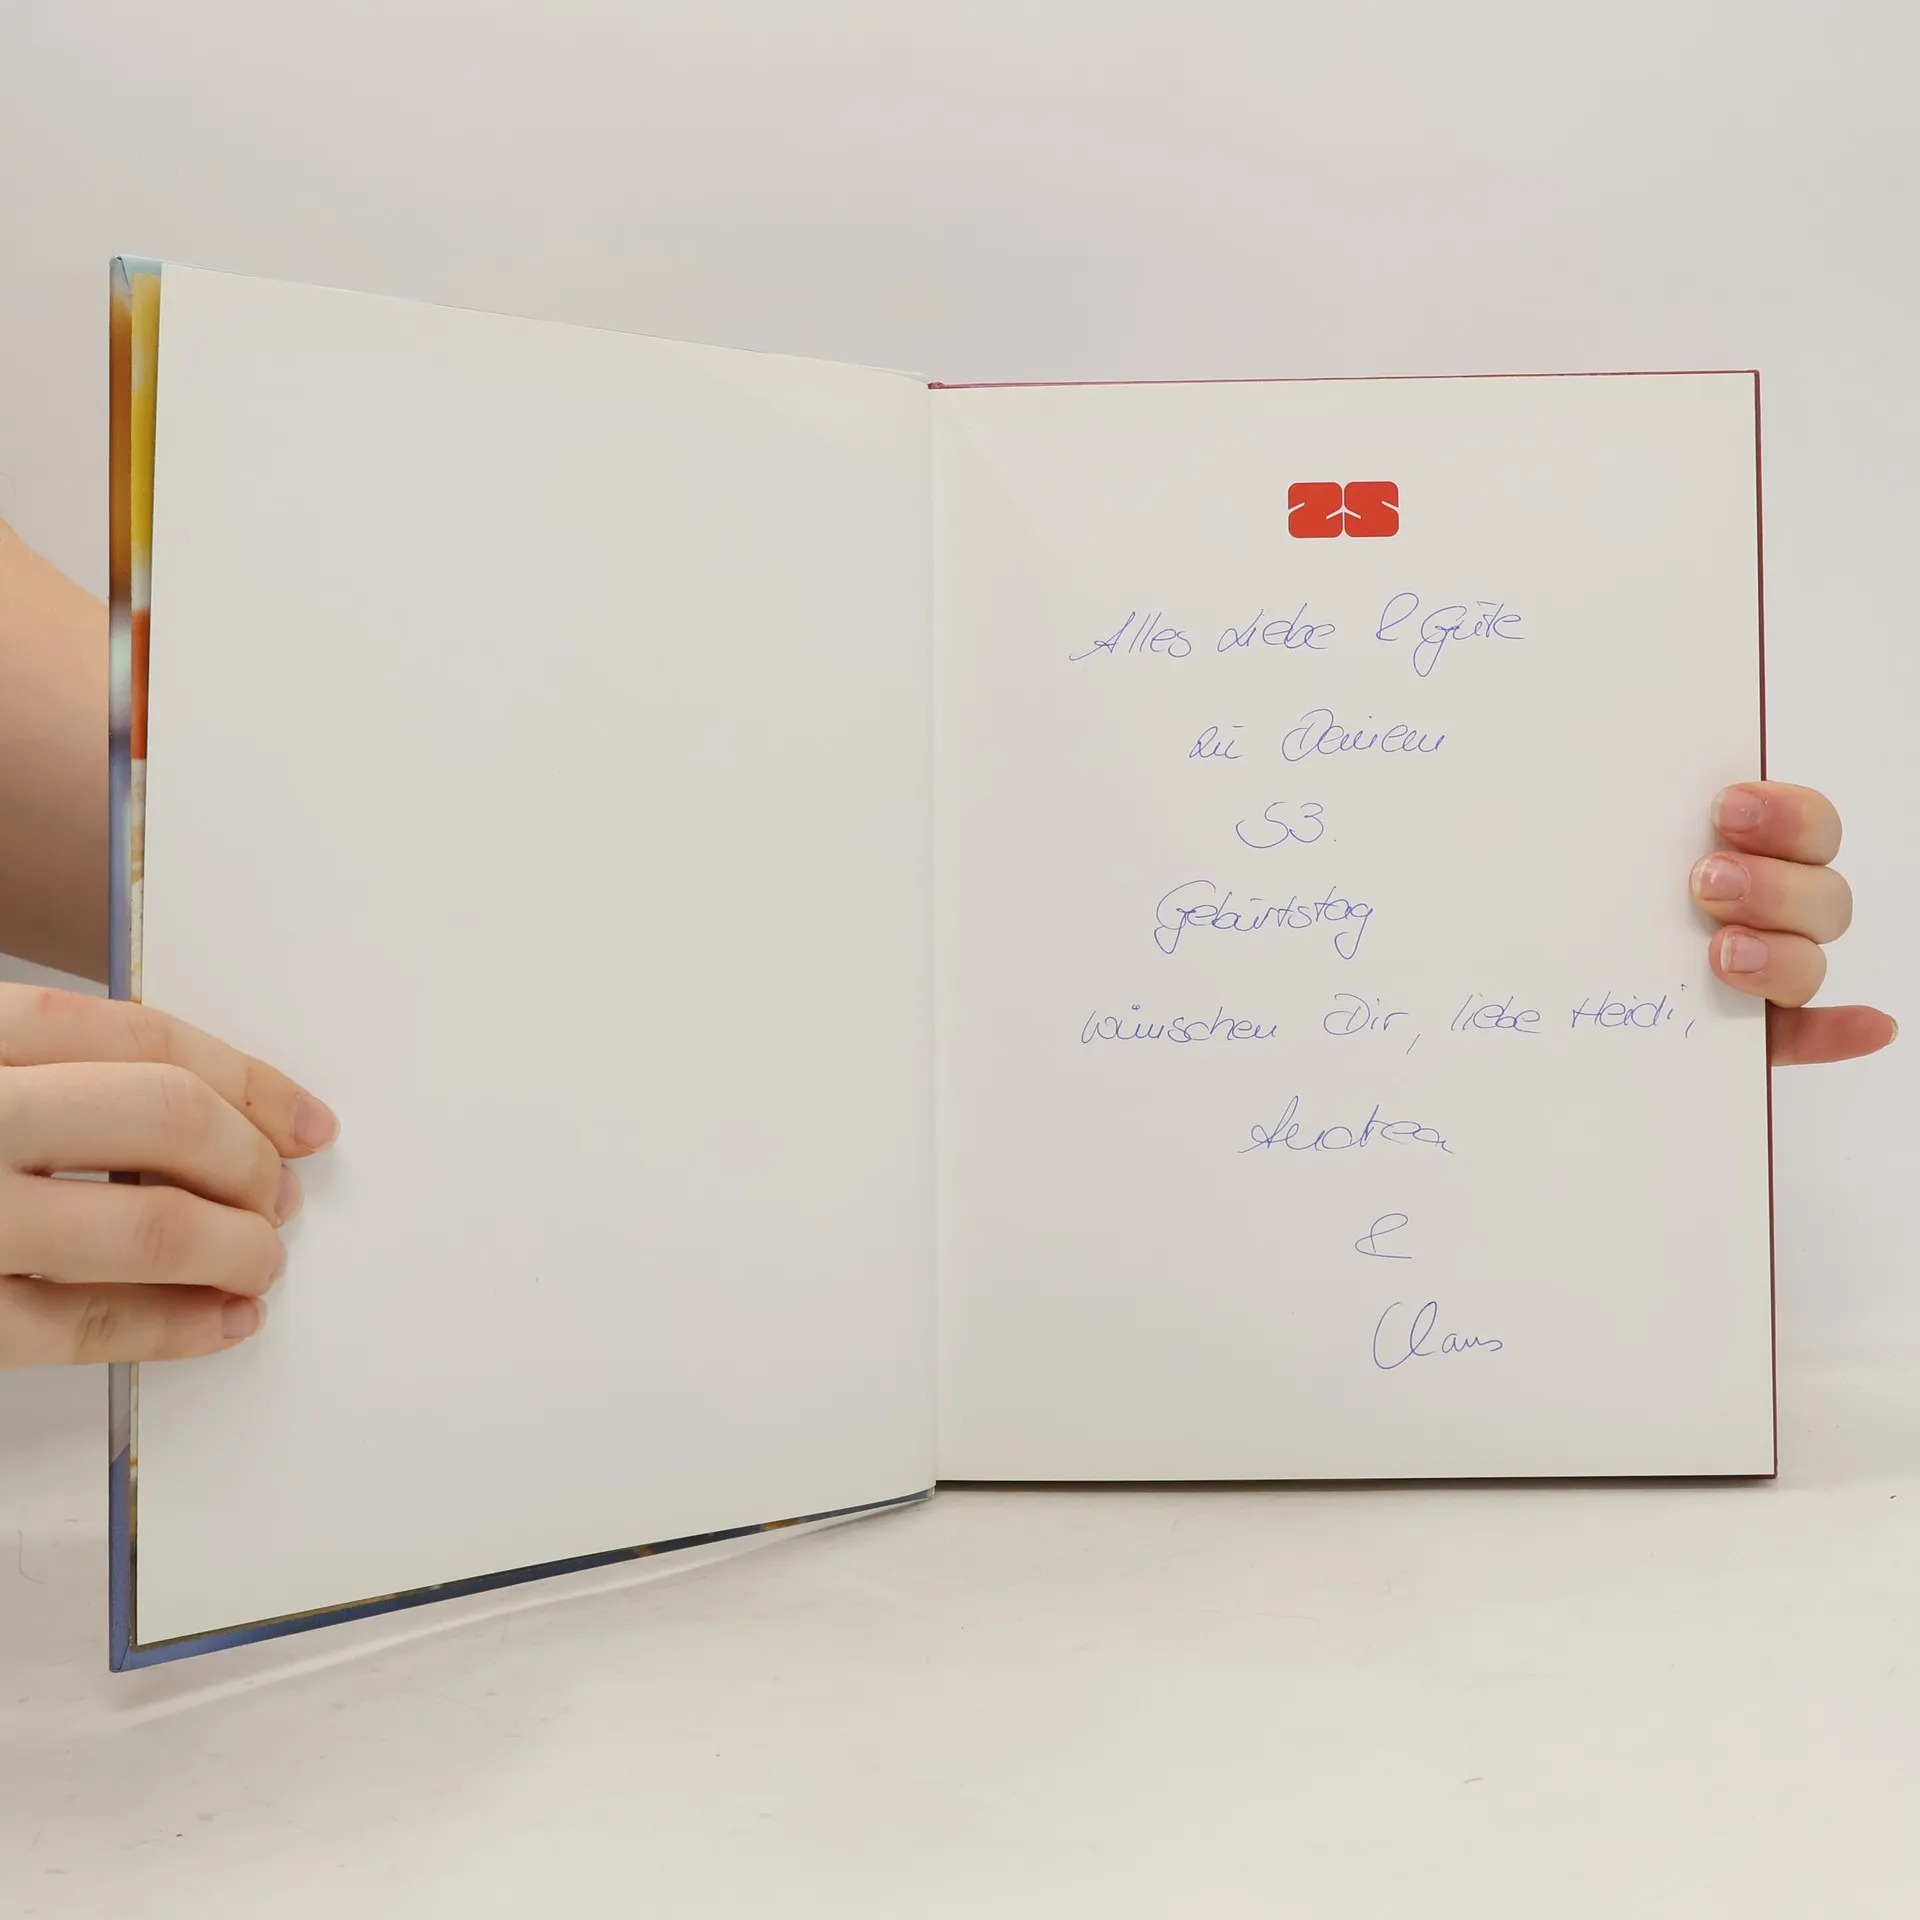 ZS
Alles Liebe & Gute
zu Deinem
53.
Geburtstag
wünschen Dir, liebe Heidi,
Andrea
&
Claus